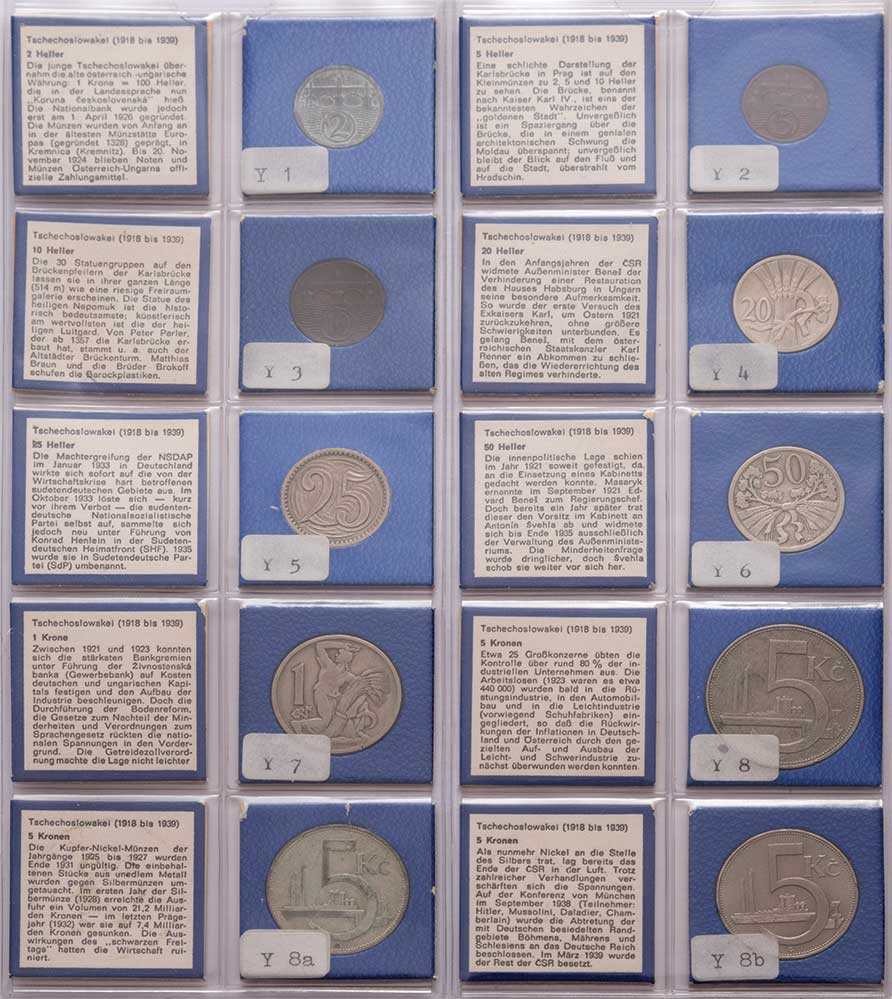 Tschechoslowakei (1918 bis 1939)
2 Heller
Die junge Tschechoslowakei über-
nahm die alte österreich-ungarische
Währung: 1 Krone = 100 Heller,
die in der Landessprache nun
„Koruna československá" hieß.
Die Nationalbank wurde jedoch
erst am 1. April 1926 gegründet.
Die Münzen wurden von Anfang an
in der ältesten Münzstätte Euro-
pas (gegründet 1328) geprägt, in
Kremnica (Kremnitz). Bis 20. No-
vember 1924 blieben Noten und
Münzen Österreich-Ungarns offi-
zielle Zahlungsmittel.
2
Y 1
Tschechoslowakei (1918 bis 1939)
5 Heller
Eine schlichte Darstellung der
Karlsbrücke in Prag ist auf den
Kleinmünzen zu 2, 5 und 10 Heller
zu sehen. Die Brücke, benannt
nach Kaiser Karl IV., ist eins der
bekanntesten Wahrzeichen der
„goldenen Stadt". Unvergeßlich
ist ein Spaziergang über die
Brücke, die in einem genialen
architektonischen Schwung die
Moldau überspannt; unvergeßlich
bleibt der Blick auf den Fluß und
auf die Stadt, überstrahlt vom
Hradschin.
5
Y 2
Tschechoslowakei (1918 bis 1939)
10 Heller
Die 30 Statuengruppen auf den
Brückenpfeilern der Karlsbrücke
lassen sie in ihrer ganzen Länge
(514 m) wie eine riesige Freiraum-
galerie erscheinen. Die Statue des
heiligen Nepomuk ist die histo-
risch bedeutsamste; künstlerisch
am wertvollsten ist die der hei-
ligen Luitgard. Von Peter Parler,
der ab 1357 die Karlsbrücke er-
baut hat, stammt u. a. auch der
Altstädter Brückenturm. Matthias
Braun und die Brüder Brokoff
schufen die Barockplastiken.
Y 3
Tschechoslowakei (1918 bis 1939)
20 Heller
In den Anfangsjahren der ČSR
widmete Außenminister Beneš der
Verhinderung einer Restauration
des Hauses Habsburg in Ungarn
seine besondere Aufmerksamkeit.
So wurde der erste Versuch des
Exkaisers Karl, um Ostern 1921
zurückzukehren, ohne größere
Schwierigkeiten unterbunden. Es
gelang Beneš, mit dem öster-
reichischen Staatskanzler Karl
Renner ein Abkommen zu schlie-
ßen, das die Wiedererrichtung des
alten Regimes verhinderte.
20
Y 4
Tschechoslowakei (1918 bis 1939)
25 Heller
Die Machtergreifung der NSDAP
im Januar 1933 in Deutschland
wirkte sich sofort auf die von der
Wirtschaftskrise hart betroffenen
sudetendeutschen Gebiete aus. Im
Oktober 1933 löste sich — kurz
vor ihrem Verbot — die sudeten-
deutsche Nationalsozialistische
Partei selbst auf, sammelte sich
jedoch neu unter Führung von
Konrad Henlein in der Sudeten-
deutschen Heimatfront (SHF). 1935
wurde sie in Sudetendeutsche Par-
tei (SdP) umbenannt.
25
Y 5
Tschechoslowakei (1918 bis 1939)
50 Heller
Die innenpolitische Lage schien
im Jahr 1921 soweit gefestigt, da.
an die Einsetzung eines Kabinetts
gedacht werden konnte. Masaryk
ernannte im September 1921 Ed-
vard Beneš zum Regierungschef.
Doch bereits ein Jahr später trat
dieser den Vorsitz im Kabinett an
Antonín Švehla ab und widmete
sich bis Ende 1935 ausschließlich
der Verwaltung des Außenministe-
riums. Die Minderheitenfrage
wurde dringlicher, doch Švehla
schob sie weiter vor sich her.
50
Y 6
Tschechoslowakei (1918 bis 1939)
1 Krone
Zwischen 1921 und 1923 konnten
sich die stärksten Bankgremien
unter Führung der Živnostenská
banka (Gewerbebank) auf Kosten
deutschen und ungarischen Kapi-
tals festigen und den Aufbau der
Industrie beschleunigen. Doch die
Durchführung der Bodenreform,
die Gesetze zum Nachteil der Min-
derheiten und Verordnungen zum
Sprachengesetz rückten die natio-
nalen Spannungen in den Vorder-
grund. Die Getreidezollverord-
nung machte die Lage nicht leichter
1
Kč
Y 7
Tschechoslowakei (1918 bis 1939)
5 Kronen
Etwa 25 Großkonzerne übten die
Kontrolle über rund 80 % der in-
dustriellen Unternehmen aus. Die
Arbeitslosen (1923 waren es etwa
440 000) wurden bald in die Rü-
stungsindustrie, in den Automobil-
bau und in die Leichtindustrie
(vorwiegend Schuhfabriken) ein-
gegliedert, so daß die Rückwir-
kungen der Inflationen in Deutsch-
land und Österreich durch den ge-
zielten Auf- und Ausbau der
Leicht- und Schwerindustrie zu-
nächst überwunden werden konnten.
5 Kč
Y 8
Tschechoslowakei (1918 bis 1939)
5 Kronen
Die Kupfer-Nickel-Münzen der
Jahrgänge 1925 bis 1927 wurden
Ende 1931 ungültig. Die einbehal-
tenen Stücke aus unedlem Metall
wurden gegen Silbermünzen um-
getauscht. Im ersten Jahr der Sil-
bermünze (1928) erreichte die Aus-
fuhr ein Volumen von 21,2 Milliar-
den Kronen — im letzten Präge-
jahr (1932) war sie auf 7,4 Milliar-
den Kronen gesunken. Die Aus-
wirkungen des „schwarzen Frei-
tags" hatten die Wirtschaft rui-
niert.
5 Kč
Y 8a
Tschechoslowakei (1918 bis 1939)
5 Kronen
Als nunmehr Nickel an die Stelle
des Silbers trat, lag bereits das
Ende der ČSR in der Luft. Trotz
zahlreicher Verhandlungen ver-
schärften sich die Spannungen.
Auf der Konferenz von München
im September 1938 (Teilnehmer:
Hitler, Mussolini, Daladier, Cham-
berlain) wurde die Abtretung der
mit Deutschen besiedelten Rand-
gebiete Böhmens, Mährens und
Schlesiens an das Deutsche Reich
beschlossen. Im März 1939 wurde
der Rest der ČSR besetzt.
5 Kč
Y 8b